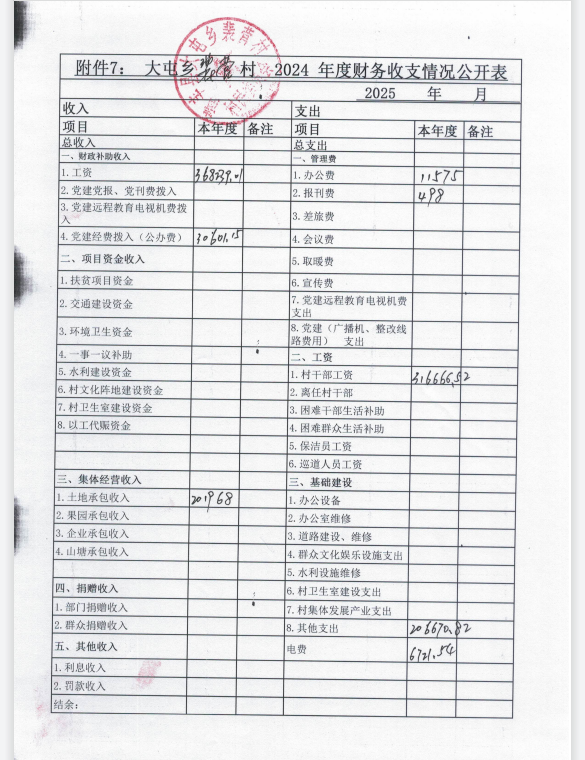 附件7: 大屯乡裴营村 2024 年度财务收支情况公开表
2025 年 月
收入 支出
项目 本年度 备注 项目 本年度 备注
总收入 总支出
一、财政补助收入 一、管理费
1.工资 368239.01 1.办公费 11575
2.党建党报、党刊费拨入 2.报刊费 498
3.党建远程教育电视机费拨入 3.差旅费
4.党建经费拨入（公办费） 30601.15 4.会议费
二、项目资金收入 5.取暖费
1.扶贫项目资金 6.宣传费
2.交通建设资金 7.党建远程教育电视机费支出
3.环境卫生资金 8.党建（广播机、整改线路费用） 支出
4.一事一议补助 二、工资
5.水利建设资金 1.村干部工资 316666.52
6.村文化阵地建设资金 2.离任村干部
7.村卫生室建设资金 3.困难干部生活补助
8.以工代赈资金 4.困难群众生活补助
5.保洁员工资
6.巡道人员工资
三、集体经营收入 三、基础建设
1.土地承包收入 201968 1.办公设备
2.果园承包收入 2.办公室维修
3.企业承包收入 3.道路建设、维修
4.山塘承包收入 4.群众文化娱乐设施支出
5.水利设施维修
四、捐赠收入 6.村卫生室建设支出
1.部门捐赠收入 7.村集体发展产业支出
2.群众捐赠收入 8.其他支出 206670.82
五、其他收入 电费 6721.54
1.利息收入
2.罚款收入
结余: